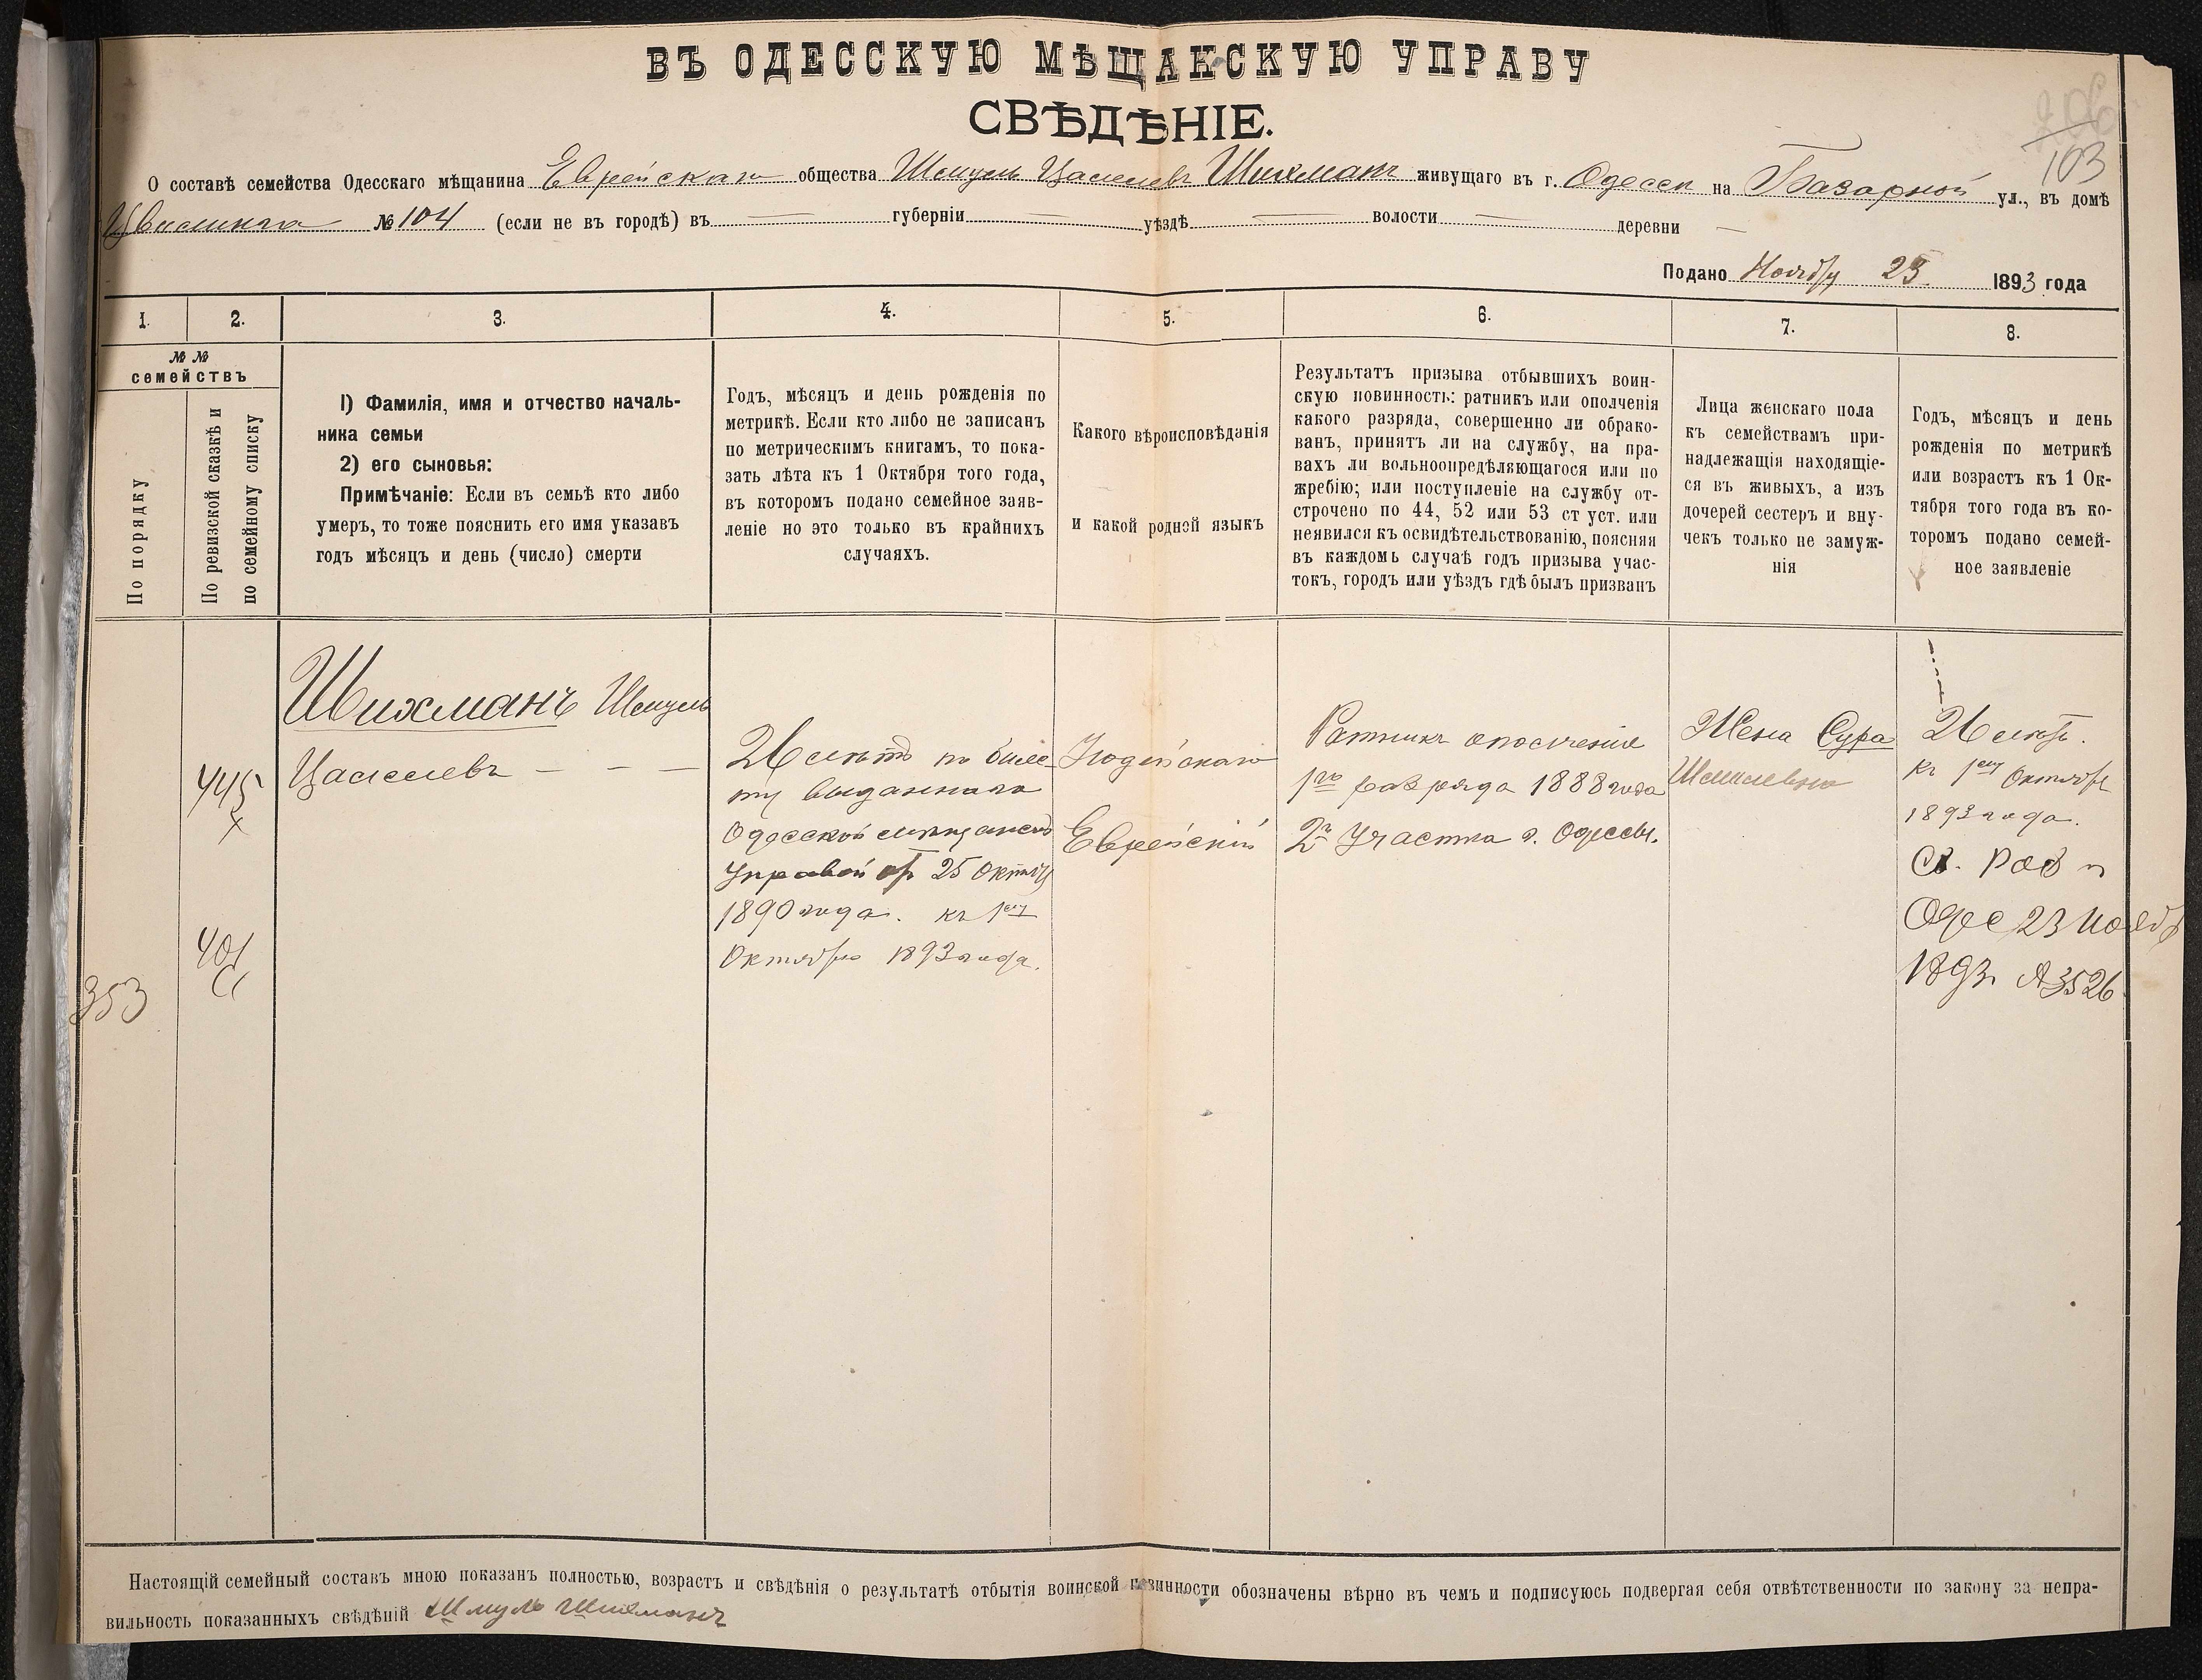 ВЪ ОДЕССКУЮ МѢЩАНСКУЮ УПРАВУ
СВѢДѢНІЕ.
103
О составѣ семейства Одесскаго мѣщанина Еврейскаго общества Шмуль Шихманъ живущаго въ г. Одессѣ на Базарной ул., въ домѣ
№ 104 (если не въ городѣ) въ — губерніи — уѣздѣ — волости — деревни —
Подано Ноября 23 1893 года
1. 2. 3. 4. 5. 6. 7. 8.
№ №
семействъ
По порядку
По ревизской сказкѣ и
по семейному списку
1) Фамилія, имя и отчество началь-
ника семьи
2) его сыновья:
Примѣчаніе: Если въ семьѣ кто либо
умеръ, то тоже пояснить его имя указавъ
годъ мѣсяцъ и день (число) смерти
Годъ, мѣсяцъ и день рожденія по
метрикѣ. Если кто либо не записанъ
по метрическимъ книгамъ, то пока-
зать лѣта къ 1 Октября того года,
въ которомъ подано семейное заяв-
леніе но это только въ крайнихъ
случаяхъ.
Какого вѣроисповѣданія
и какой родной языкъ
Результатъ призыва отбывшихъ воин-
скую повинность: ратникъ или ополченія
какого разряда, совершенно ли обрако-
ванъ, принятъ ли на службу, на пра-
вахъ ли вольноопредѣляющагося или по
жребію; или поступленіе на службу от-
строчено по 44, 52 или 53 ст уст. или
неявился къ освидѣтельствованію, поясняя
въ каждомъ случаѣ годъ призыва учас-
токъ, городъ или уѣздъ гдѣ былъ призванъ
Лица женскаго пола
къ семействамъ при-
надлежащія находящіе-
ся въ живыхъ, а изъ
дочерей сестеръ и вну-
чекъ только не замуж-
нія
Годъ, мѣсяцъ и день
рожденія по метрикѣ
или возрастъ къ 1 Ок-
тября того года въ ко-
торомъ подано семей-
ное заявленіе
353
445
х
401
Шихманъ Шмуль
— — —
26 лѣтъ по биле-
ту выданнаго
Одесской мѣщанской
Управой от 25 Октября
1890 года. къ 1ему
Октября 1893 года.
Іудейскаго
Еврейскій
Ратникъ ополченія
1го разряда 1888 года
2го Участка г. Одессы.
Жена Сура
26 лѣтъ.
къ 1ему Октября
1893 года.
Св. Раб
Одес 23 Ноябр
1893 № 3526
Настоящій семейный составъ мною показанъ полностью, возрастъ и свѣдѣнія о результатѣ отбытія воинской повинности обозначены вѣрно въ чемъ и подписуюсь подвергая себя отвѣтственности по закону за непра-
вильность показанныхъ свѣдѣній Шмуль Шихманъ